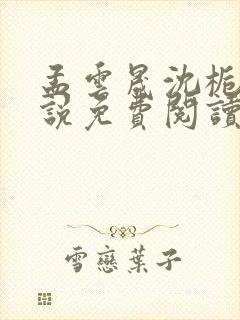 孟雲晟沈栀
說免費閱讀
雪戀葉子